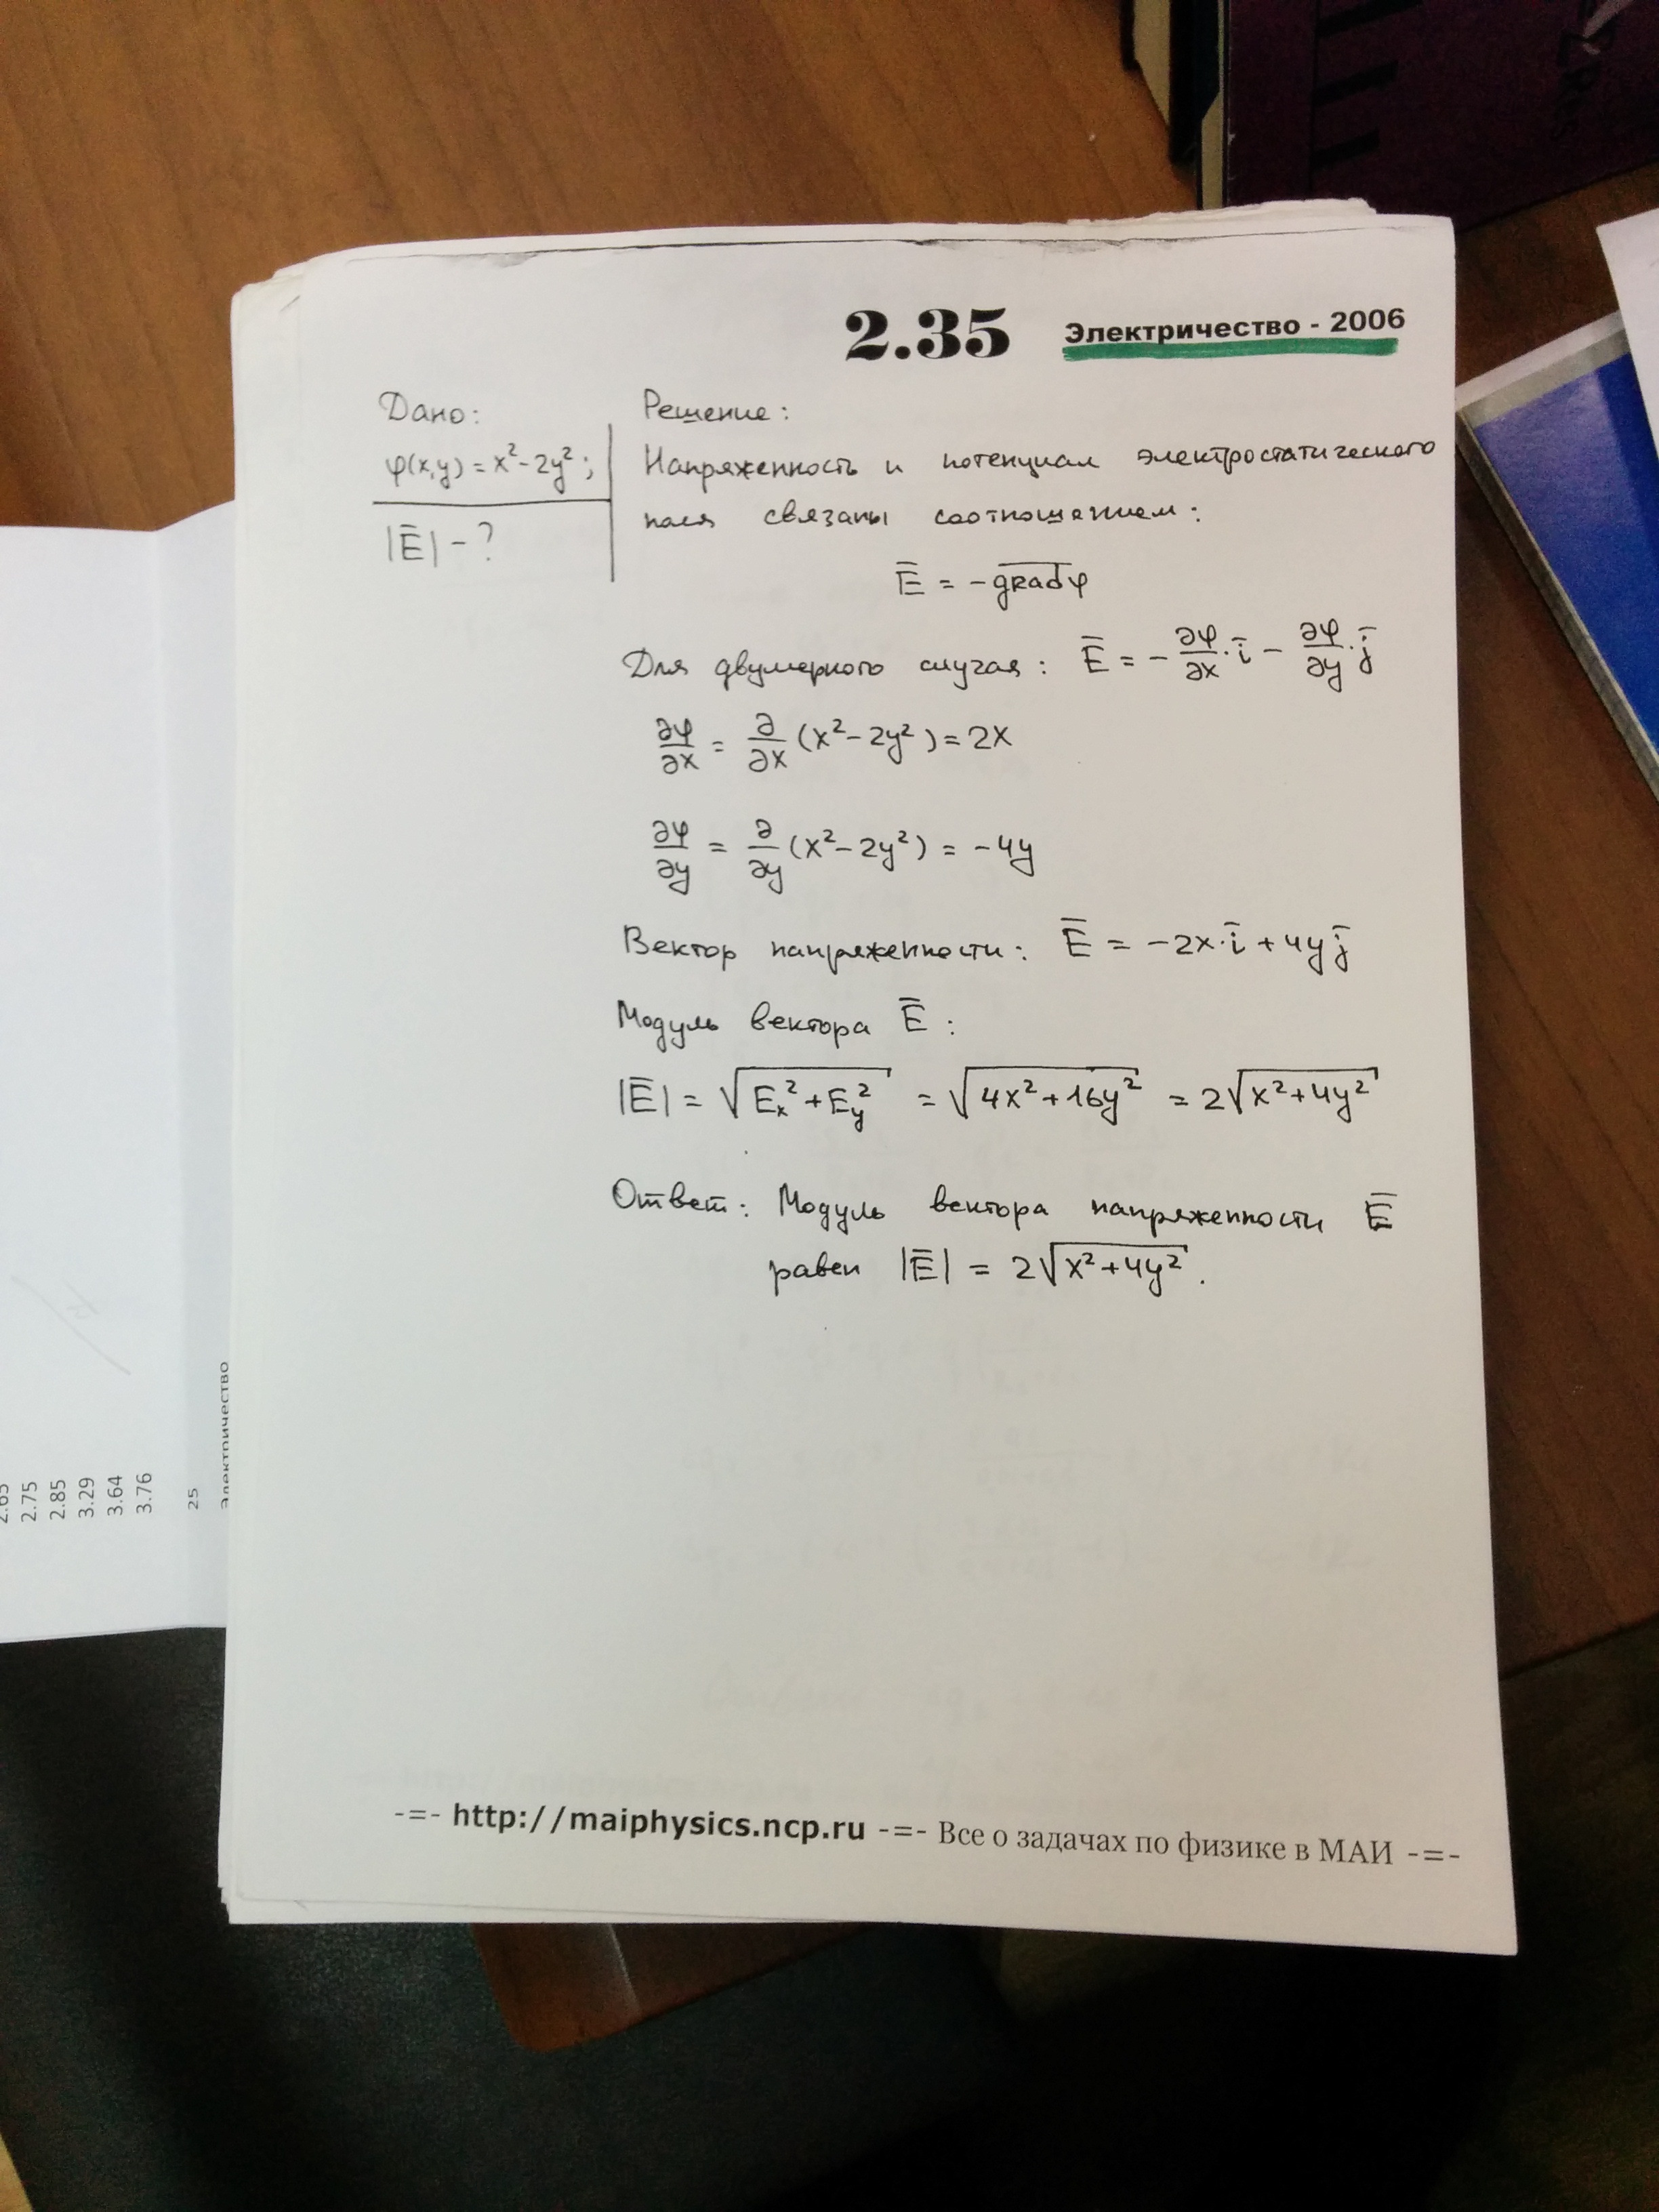 2.35 Электричество - 2006
Дано:
φ(x,y) = x² - 2y²;
|E̅| - ?
Решение:
Напряженность и потенциал электростатического
поля связаны соотношением:
E̅ = - g̅r̅a̅d̅φ
Для двумерного случая: E̅ = - ∂φ/∂x · i̅ - ∂φ/∂y · j̅
∂φ/∂x = ∂/∂x (x² - 2y²) = 2x
∂φ/∂y = ∂/∂y (x² - 2y²) = -4y
Вектор напряженности: E̅ = -2x · i̅ + 4y j̅
Модуль вектора E̅ :
|E̅| = √(Eₓ² + E_y²) = √(4x² + 16y²) = 2√(x² + 4y²)
Ответ: Модуль вектора напряженности E̅
равен |E̅| = 2√(x² + 4y²).
-=- http://maiphysics.ncp.ru -=- Все о задачах по физике в МАИ -=-
2.75
2.85
3.29
3.64
3.76
25
Электричество